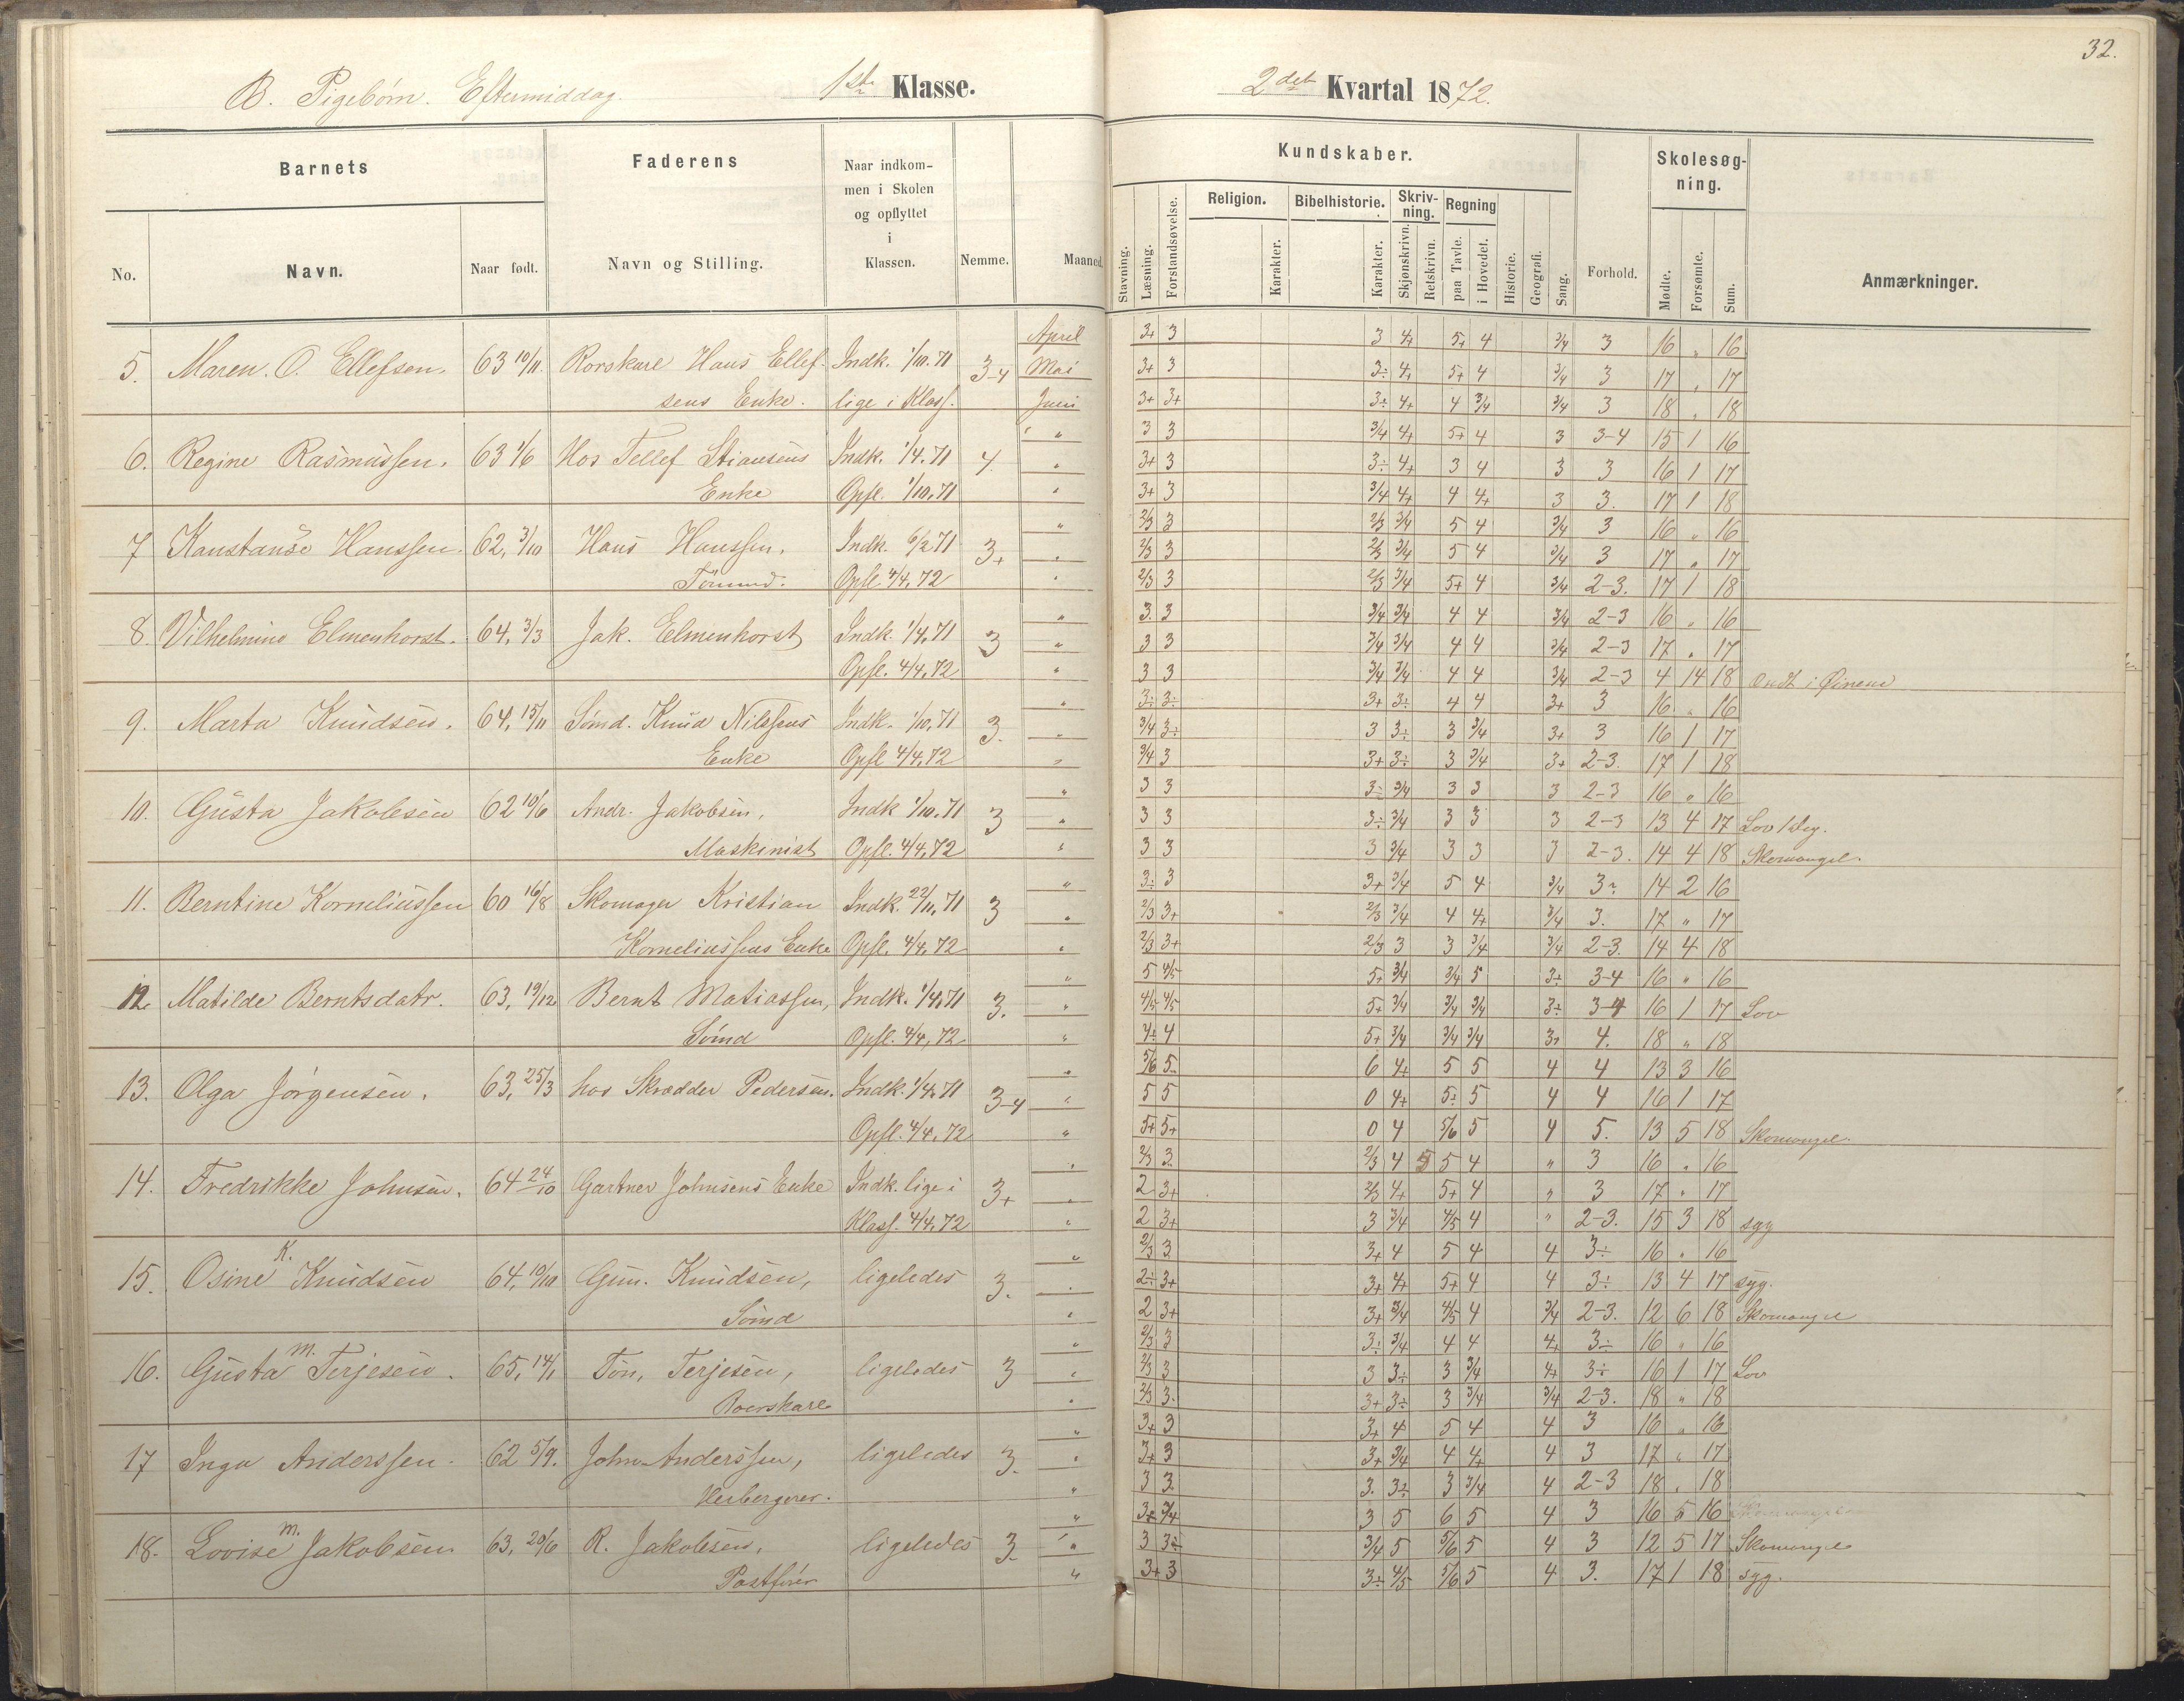 32.
B. Pigebörn. Eftermiddag. 1ste Klasse. 2det Kvartal 1872.
Barnets Faderens Naar indkom-
men i Skolen
og opflyttet
i
Klassen. Nemme. Maaned.
No. Navn. Naar født. Navn og Stilling.
Kundskaber. Skolesøg-
ning.
Stavning. Læsning. Forstandsøvelse. Religion. Karakter. Bibelhistorie. Karakter. Skriv-
ning. Skjønskrivn. Retskrivn. Regning paa Tavle. i Hovedet. Historie. Geografi. Sang. Forhold. Mødte. Forsømte. Sum. Anmærkninger.
April 3+ 3 3 4+ 5+ 4 3/4 3 16 " 16
5. Maren. O. Ellefsen. 63 10/11 Rorskarl Hans Ellef- Indk. 1/10.71 3-4 Mai 3+ 3 3÷ 4+ 5+ 4 3/4 3 17 " 17
sens Enke. lige i Klass. Juni 3+ 3+ 3÷ 4+ 4 3/4 3/4 3 18 " 18
" 3 3 3/4 4+ 5+ 4 3 3-4 15 1 16
6. Regine Rasmussen. 63 1/6 Hos Tellef Stiansens Indk. 1/4.71 4. " 3+ 3 3÷ 4+ 3 4 3 3 16 1 17
Enke Opfl. 1/10.71 " 3+ 3 3/4 4+ 4 4+ 3 3. 17 1 18
" 2/3 3 2/3 3/4 5 4 3/4 3 16 " 16
7 Konstanse Hanssen. 62, 3/10 Hans Hanssen, Indk. 6/2 71 3+ " 2/3 3 2/3 3/4 5 4 3/4 3 17 " 17
Tömmd. Opfl. 4/4, 72 " 2/3 3 2/3 3/4 5+ 4 3/4 2-3. 17 1 18
" 3. 3 3/4 3/4 4 4 3/4 2-3 16 " 16
8. Vilhelmine Elmenhorst. 64, 3/3 Jak. Elmenhorst Indk. 1/4.71 3 " 3 3 3/4 3/4 4 4 3/4 2-3 17 " 17
Opfl. 4/4.72 " 3 3 3/4 3/4 4 4 3/4 2-3 4 14 18 Ondt i Öinene
" 3÷ 3÷ 3+ 3÷ 4 4 3+ 3 16 " 16
9. Marta Knudsen. 64, 15/11 Sömd. Knud Nilssens Indk. 1/10, 71 3. " 3/4 3÷ 3 3÷ 3 3/4 3+ 3 16 1 17
Enke Opfl 4/4.72 " 3/4 3 3+ 3÷ 3 3/4 3+ 2-3. 17 1 18
" 3 3 3÷ 3/4 3 3 3 2-3 16 " 16
10. Gusta Jakobsen 62 10/6 Andr. Jakobsen, Indk 1/10.71 3 " 3 3 3÷ 3/4 3 3 3 2-3 13 4 17 Lov 1 Dag.
Maskinist Opfl. 4/4, 72 " 3 3 3 3/4 3 3 3 2-3. 14 4 18 Skomangel.
" 3÷ 3 3+ 3/4 5 4 3/4 3÷ 14 2 16
11. Berntine Korneliussen 60 16/8 Skomager Kristian Indk. 22/11, 71 3 " 2/3 3+ 2/3 3/4 4 4+ 3/4 3. 17 " 17
Korneliussens Enke Opfl. 4/4, 72 " 2/3 3+ 2/3 3 3 3/4 3/4 2-3. 14 4 18
" 5 4/5 5+ 3/4 3/4 5 3÷ 3-4 16 " 16
12. Matilde Berntsdatr. 63, 19/12 Bernt Matiassen, Indk. 1/4.71 3. " 4/5 4/5 5+ 3/4 3/4 3/4 3÷ 3-4 16 1 17 Lov
Sömd Opfl. 4/4, 72 " 4÷ 4 5+ 3/4 3/4 3/4 3÷ 4. 18 " 18
" 5/6 5÷ 6 4+ 5 5 4 4 13 3 16
13. Olga Jörgensen. 63, 25/3 hos Skrædder Pedersen. Indk. 1/4.71 3-4 " 5 5 0 4+ 5÷ 5 4 4 16 1 17
Opfl. 4/4.72 " 5+ 5+ 0 4 5/6 5 4 5. 13 5 18 Skomangel.
" 2/3 3. 2/3 4 5 5 4 " 3 16 " 16
14. Fredrikke Johnsen. 64 24/10 Gartner Johnsens Enke Indk. lige i 3+ " 2 3+ 2/3 4+ 5+ 4 " 3 17 " 17
Klass. 4/4.72 " 2 3+ 3 3/4 4/5 4 " 2-3. 15 3 18 syg
" 2/3 3 3+ 4 5 4 4 3÷ 16 " 16
15. Osine K. Knudsen 64, 10/10 Gun. Knudsen, ligeledes 3. " 2÷ 3+ 3+ 4+ 5+ 4 4 3÷ 13 4 17 syg.
Sömd " 2 3+ 3+ 3/4 4/5 4 3/4 2-3. 12 6 18 Skomangel
" 2/3 3 3÷ 3/4 4 4 4+ 3÷ 16 " 16
16. Gusta M. Terjesen. 65, 14/1 Tön. Terjesen, ligeledes 3 " 2/3 3 3 3÷ 3 3/4 4+ 3÷ 16 1 17 Lov
Roerskarl " 2/3 3. 3+ 3÷ 3 3/4 3/4 2-3. 18 " 18
" 3+ 3 3+ 4 5 4 4 3 16 " 16
17 Inga Anderssen. 62 5/9. John Anderssen, ligeledes 3. " 3+ 3 3+ 3/4 4 4+ 4 3 17 " 17
Herbergerer. " 3 3. 3. 3÷ 3 3/4 4 2-3 18 " 18
" 3+ 3/4 3 5 6 5 4 3 16 5 16
18. Lovise M. Jakobsen 63, 20/6 R. Jakobsen, ligeledes 3. " 3 3÷ 3/4 5 5/6 5 4 3 12 5 17 Skomangel
Postförer " 3+ 3 3÷ 4/5 5/6 5 4 3. 17 1 18 syg.